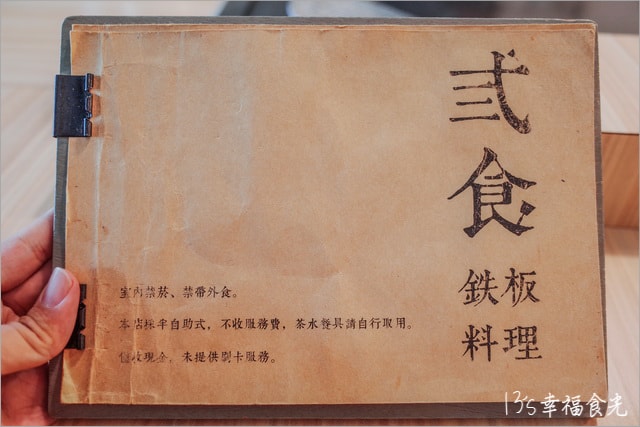 弍食
鉄板
料理
室內禁菸、禁帶外食。
本店採半自助式，不收服務費，茶水餐具請自行取用。
僅收現金，未提供刷卡服務。
13's幸福食光